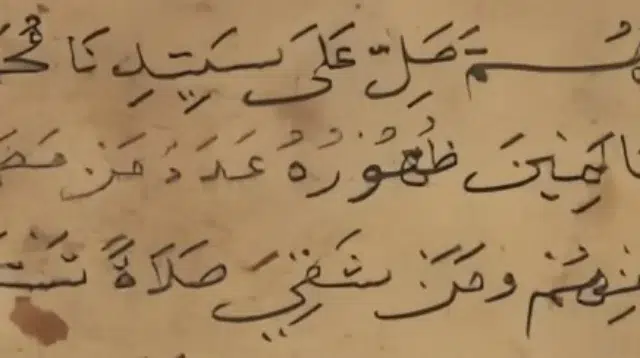 ـهُمَّ صَلِّ عَلَى سَيِّدِنَا مُحَـ
ـالَمِينَ ظُهُورُهُ عَدَدَ مَنْ مَضَـ
مِنْهُمْ وَمَنْ شَقِيَ صَلَاةً تَسْتَـ